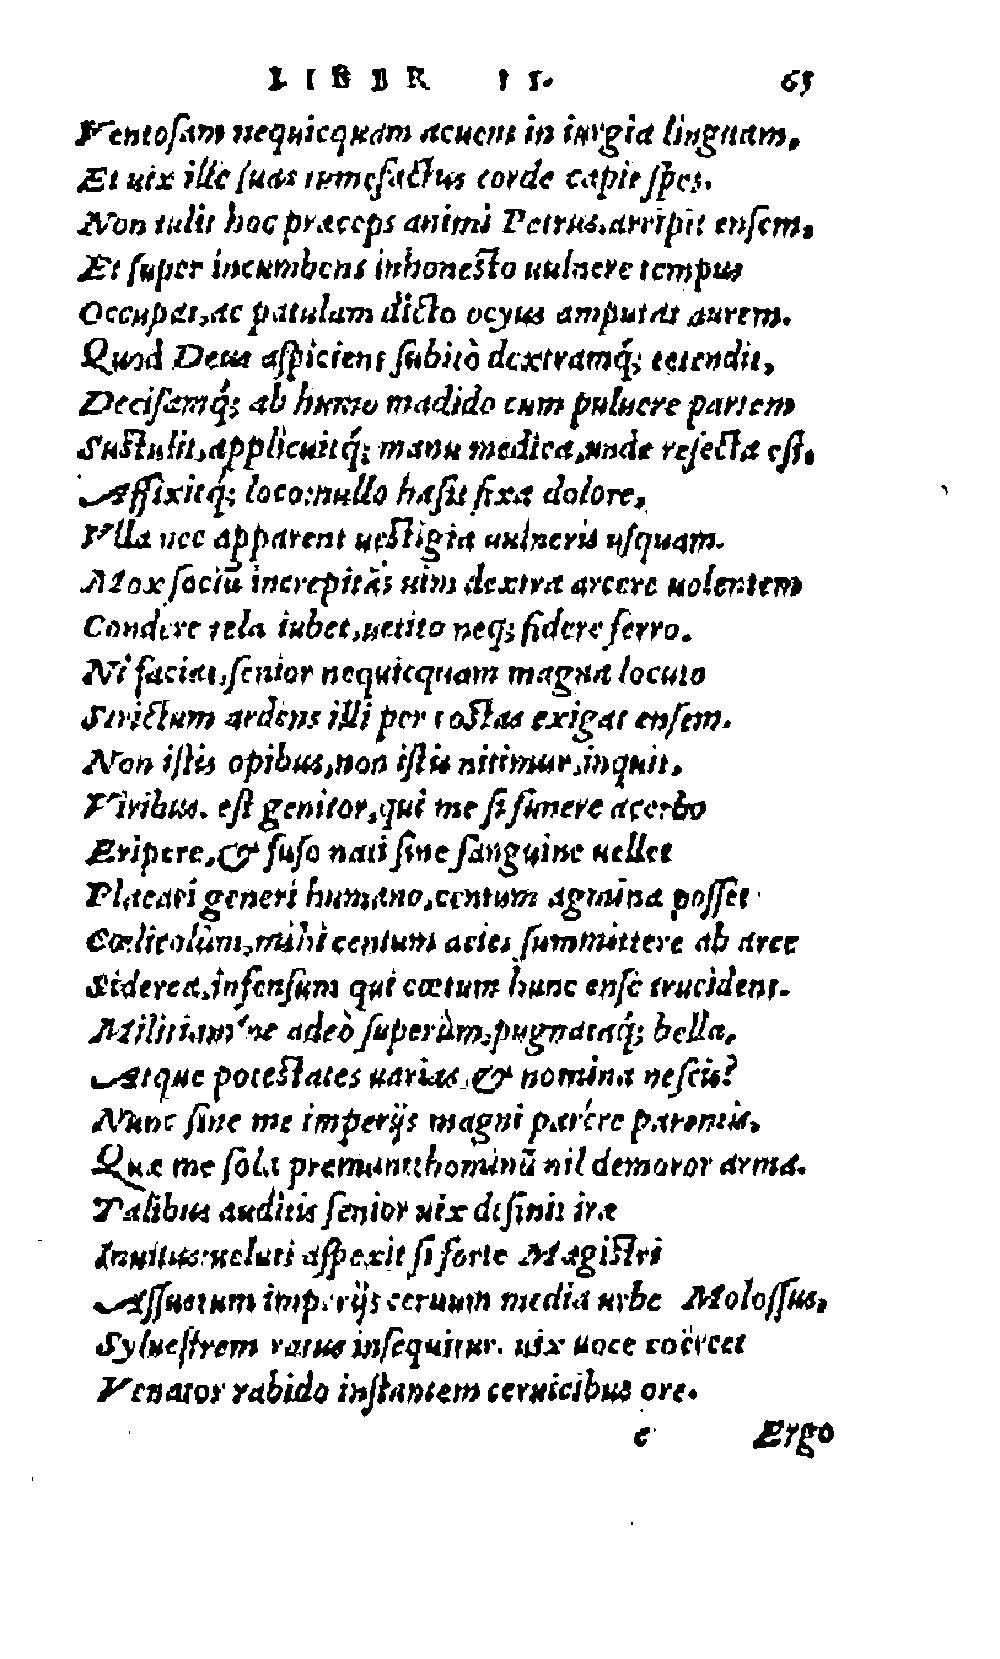 LIBER II. 65
Ventosam nequicquam acuens in iurgia linguam,
Et uix ille suas tumefactus corde capit spes.
Non tulit hoc præceps animi Petrus, arripit ensem,
Et super incumbens inhonesto uulnere tempus
Occupat, ac patulam dicto ocyus amputat aurem.
Quod Deus aspiciens subitò dextramq́; tetendit,
Decisamq́; ab humo madido cum puluere partem
Sustulit, applicuitq́; manu medica, unde resecta est,
Affixitq́; loco: nullo hæsit fixa dolore,
Vlla nec apparent uestigia uulneris usquam.
Mox sociū increpitās uim dextra arcere uolentem
Condere tela iubet, uetito neq; fidere ferro.
Ni faciat, senior nequicquam magna locuto
Strictum ardens illi per costas exigat ensem.
Non istis opibus, non istis nitimur, inquit,
Viribus. est genitor, qui me si funere acerbo
Eripere, & fuso nati sine sanguine uellet
Placari generi humano, centum agmina posset
Cœlicolûm, mihi centum acies summittere ab arce
Siderea, infensum qui cœtum hunc ense trucident.
Militiam'ne adeò superûm, pugnataq́; bella,
Atque potestates uarias, & nomina nescis?
Nunc sine me imperijs magni parére parentis,
Quæ me sola premunt: hominū nil demoror arma.
Talibus auditis senior uix desinit iræ
Inuitus: ueluti aspexit si forte Magistri
Assuetum imperijs ceruum media urbe Molossus,
Syluestrem ratus insequitur. uix uoce coërcet
Venator rabido instantem ceruicibus ore.
e Ergo